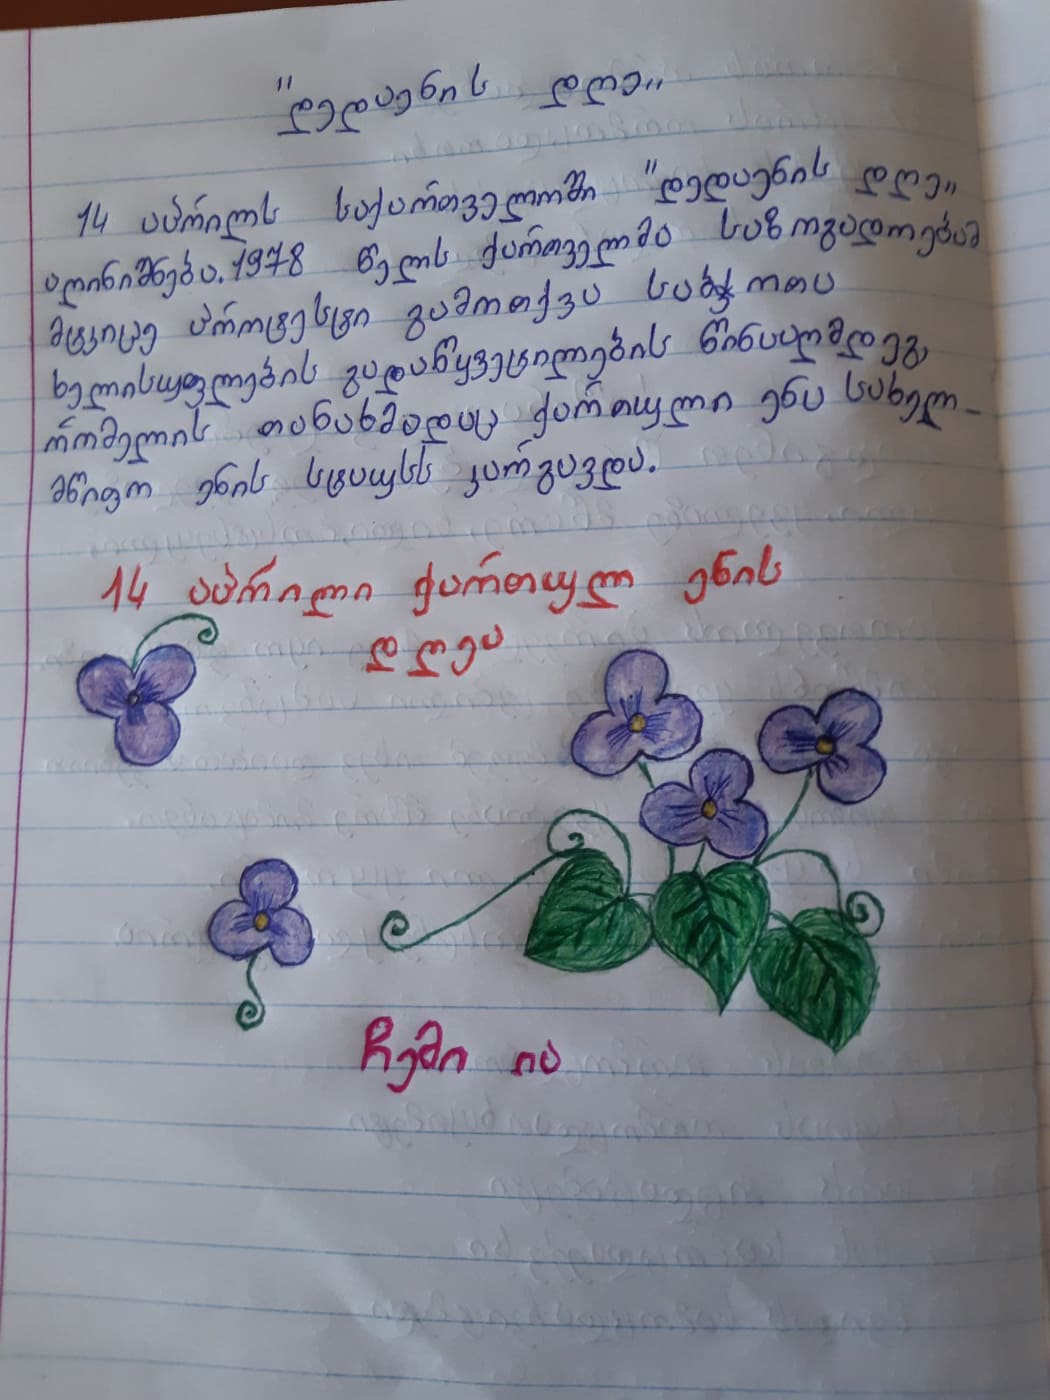 "დედაენის დღე"
14 აპრილს საქართველოში "დედაენის დღე"
აღინიშნება. 1978 წელს ქართველმა საზოგადოებამ
მტკიცე პროტესტი გამოთქვა საბჭოთა
ხელისუფლების გადაწყვეტილების წინააღმდეგ,
რომელის თანახმადაც ქართული ენა სახელ-
მწიფო ენის სტატუსს კარგავდა.
14 აპრილი ქართულ ენის
დღეა
ჩემი ია